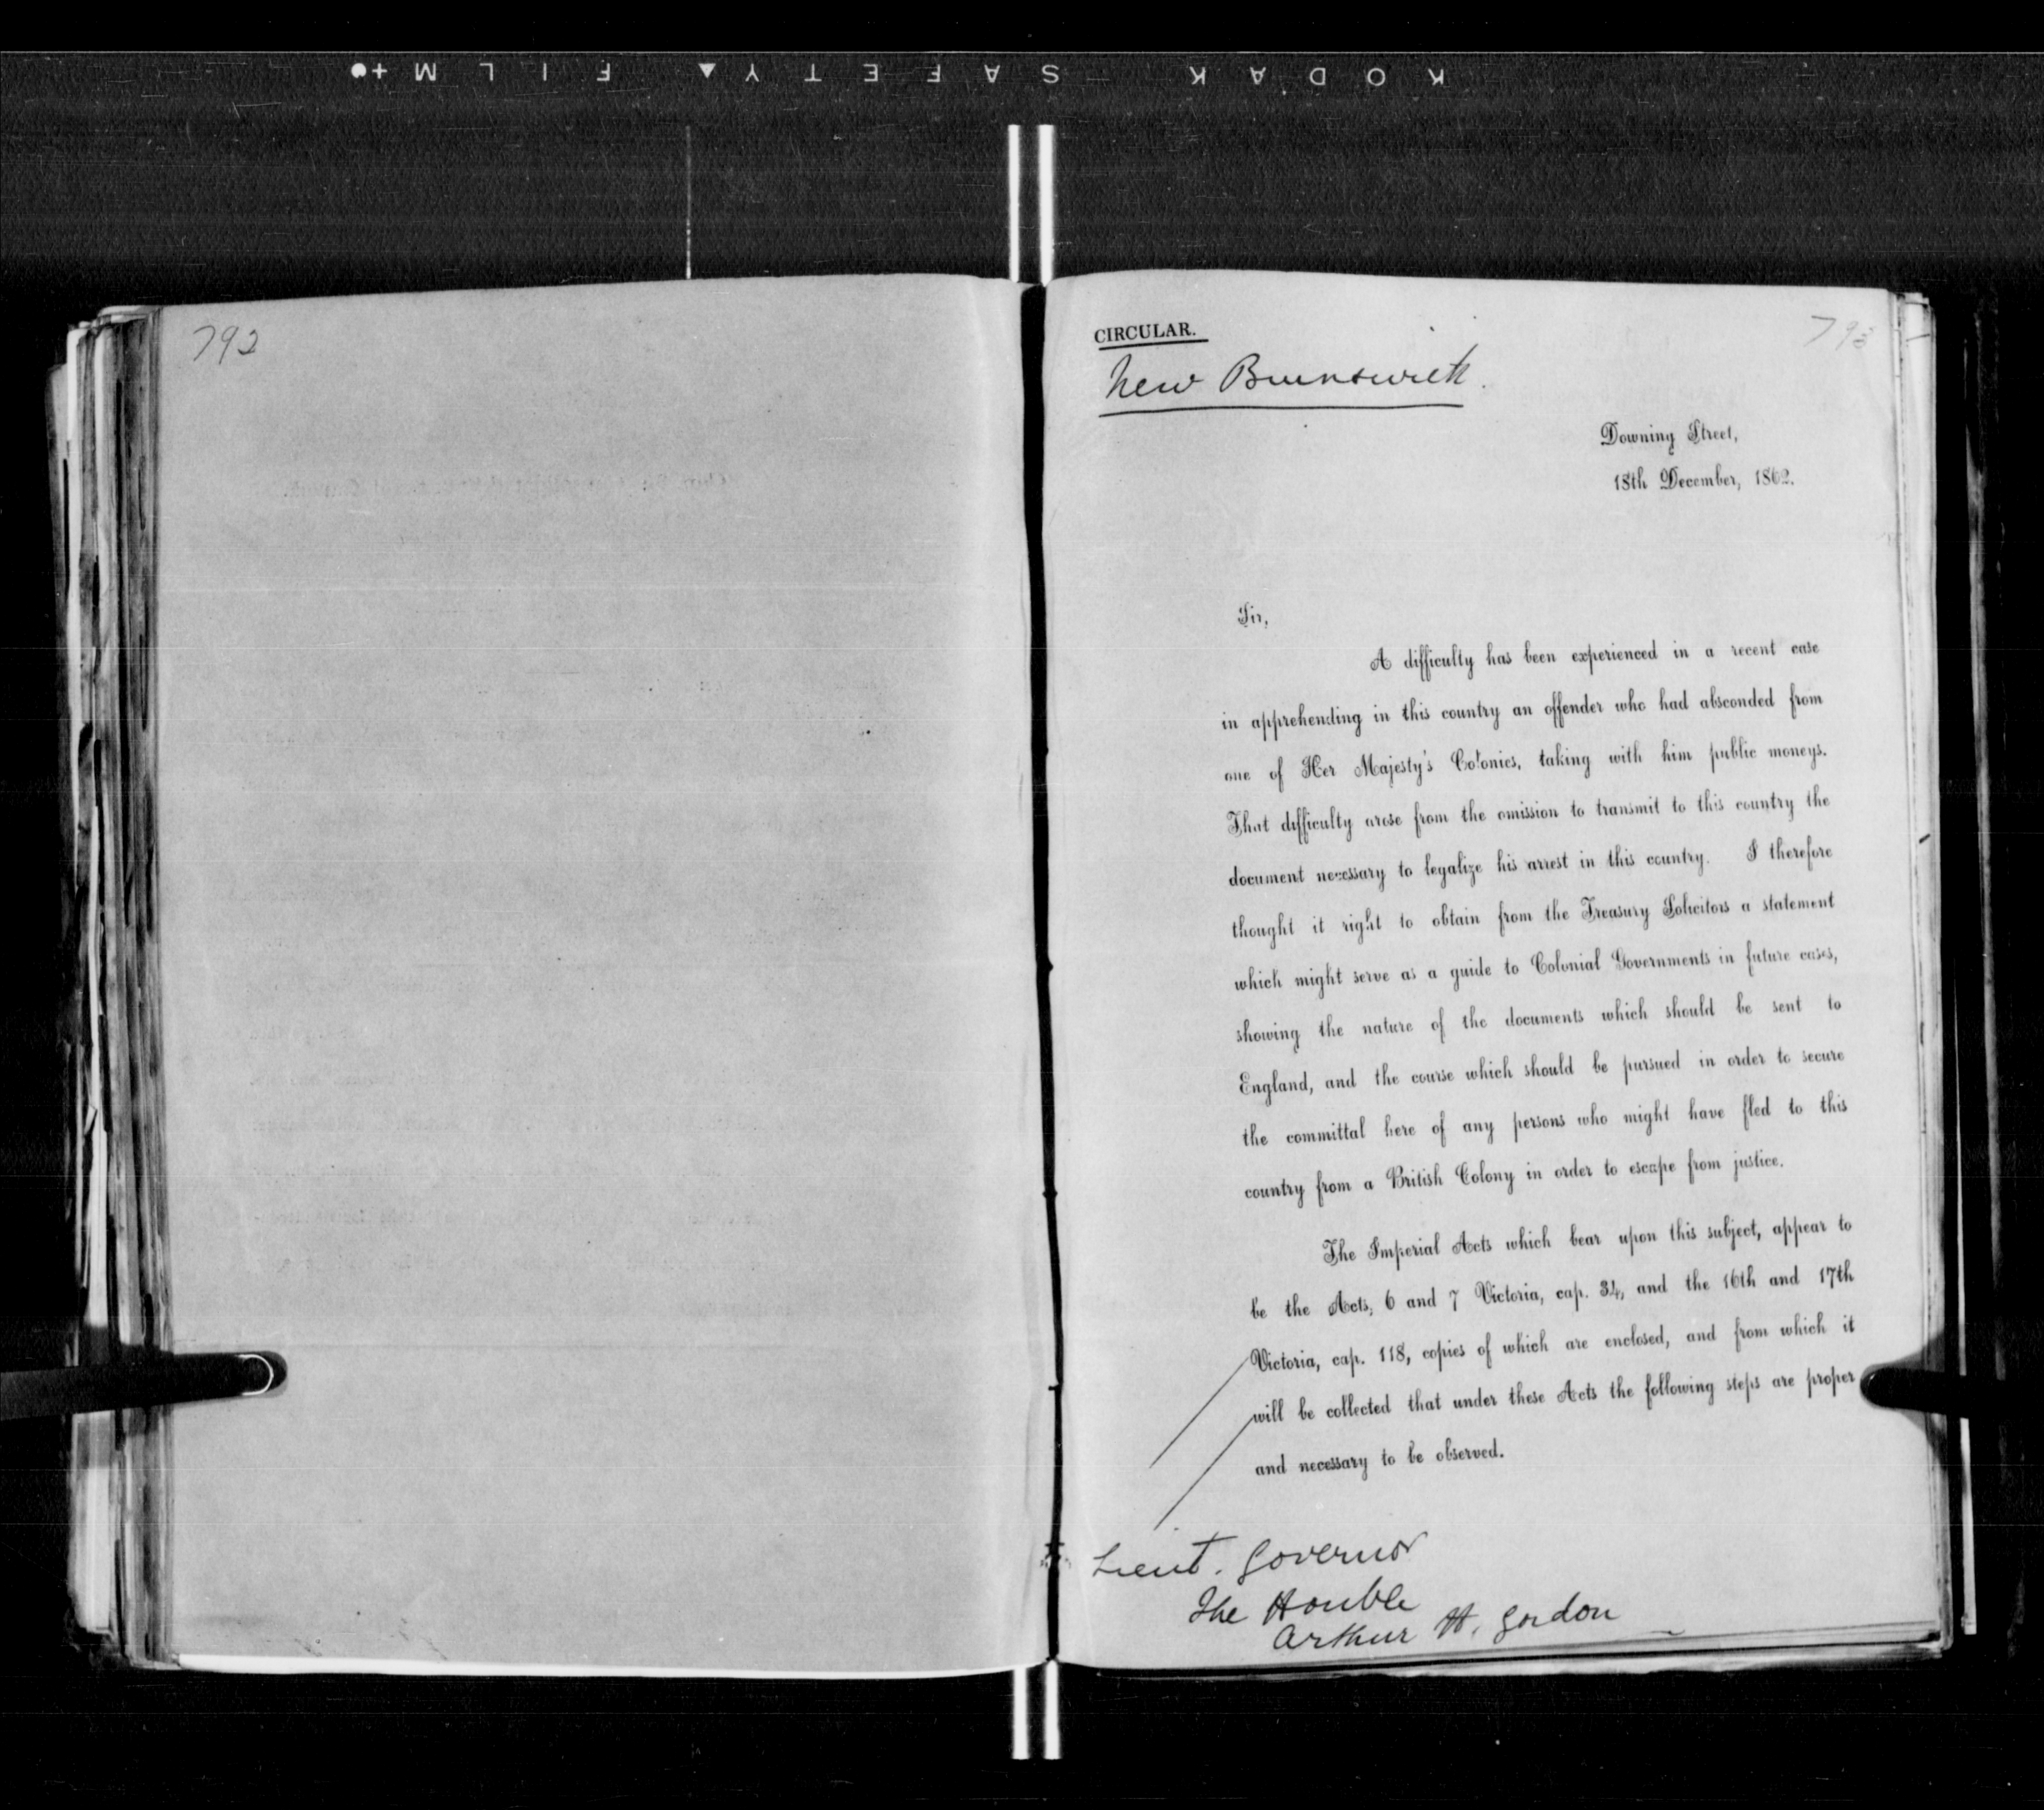 KODAK SAFETY FILM
792
CIRCULAR.
New Brunswick.
793
Downing Street,
18th December, 1862.
Sir,
A difficulty has been experienced in a recent case
in apprehending in this country an offender who had absconded from
one of Her Majesty's Colonies, taking with him public moneys.
That difficulty arose from the omission to transmit to this country the
document necessary to legalize his arrest in this country. I therefore
thought it right to obtain from the Treasury Solicitors a statement
which might serve as a guide to Colonial Governments in future cases,
showing the nature of the documents which should be sent to
England, and the course which should be pursued in order to secure
the committal here of any persons who might have fled to this
country from a British Colony in order to escape from justice.
The Imperial Acts which bear upon this subject, appear to
be the Acts, 6 and 7 Victoria, cap. 34, and the 16th and 17th
Victoria, cap. 118, copies of which are enclosed, and from which it
will be collected that under these Acts the following steps are proper
and necessary to be observed.
Lieut. Governor
The Honble
Arthur H. Gordon